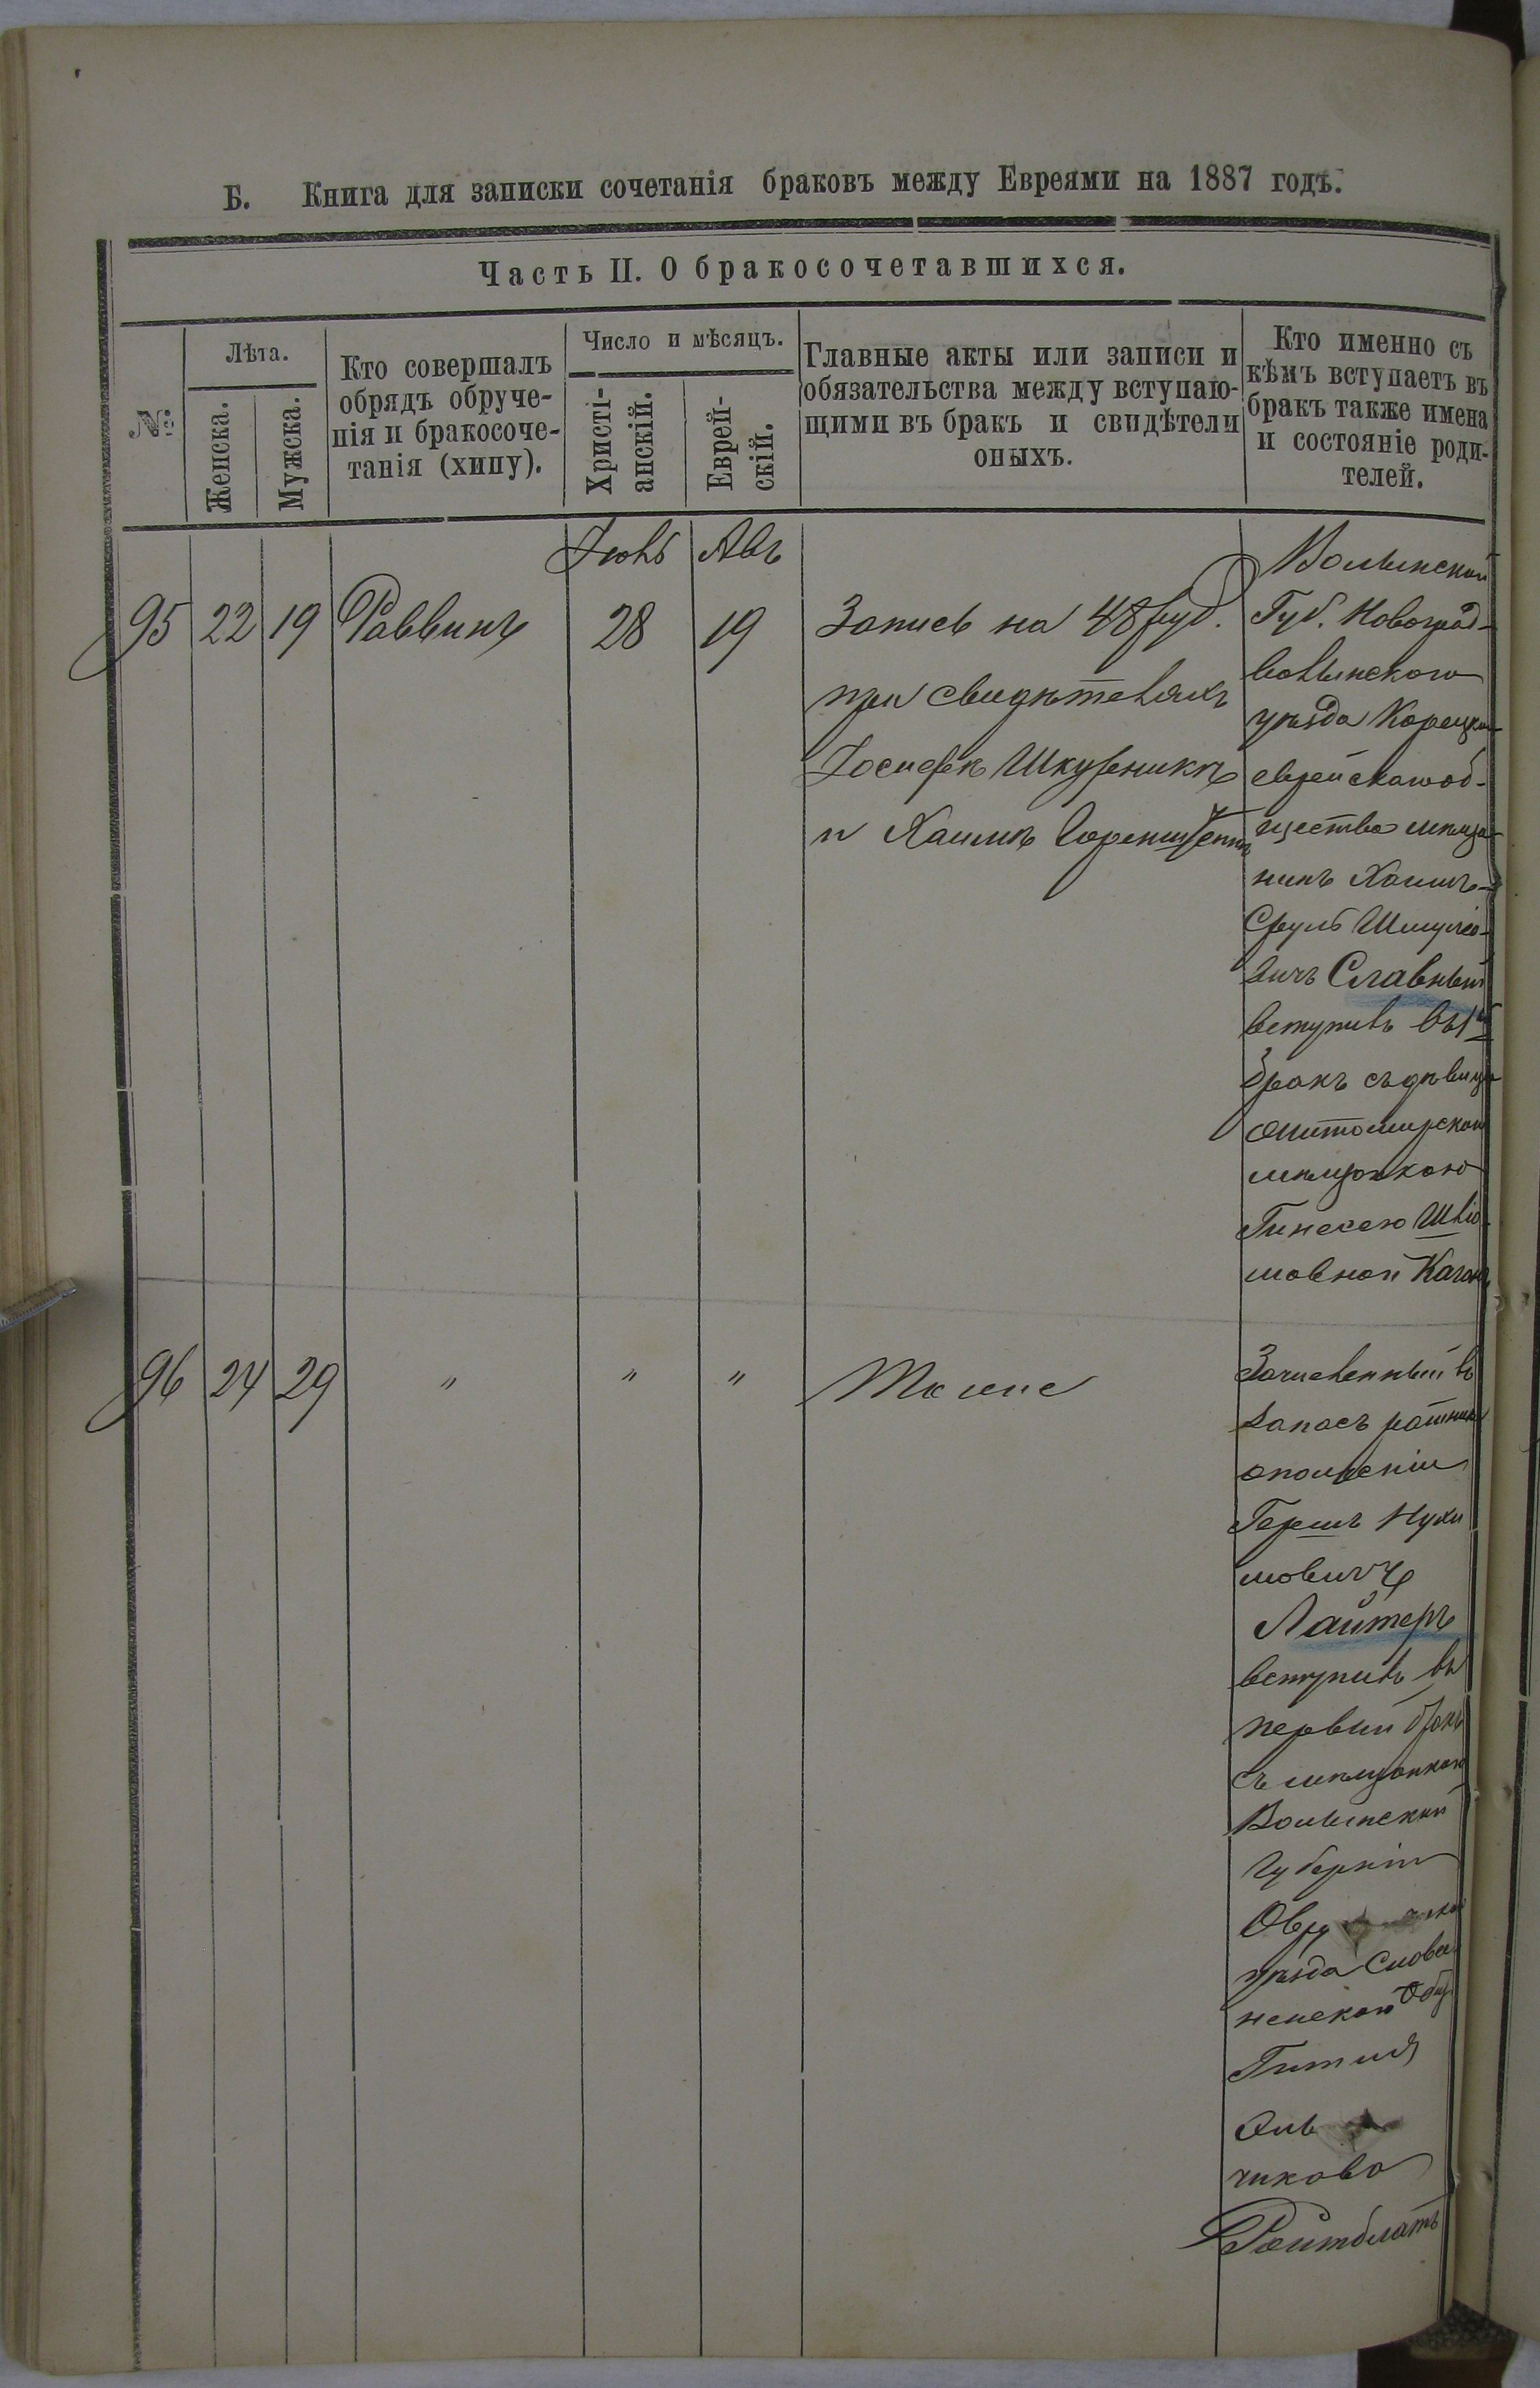 Б. Книга для записки сочетанія браковъ между Евреями на 1887 годъ.
Часть II. О бракосочетавшихся.
№
Лѣта.
Женска.
Мужска.
Кто совершалъ
обрядъ обруче-
нія и бракосоче-
танія (хипу).
Число и мѣсяцъ.
Христі-
анскій.
Еврей-
скій.
Главные акты или записи и
обязательства между вступаю-
щими въ бракъ и свидѣтели
оныхъ.
Кто именно съ
кѣмъ вступаетъ въ
бракъ также имена
и состояніе роди-
телей.
Іюль Авъ
95 22 19 Раввинъ 28 19
Запись на 48 руб.
при свидѣтеляхъ
Іосифъ Шкурникъ
и Хаимъ
Волынской
Губ. Новоград-
волынскаго
уѣзда Корецкаго
еврейскаго об-
щества мѣща-
нинъ Хаимъ-
Сруль Шмуліо-
вичъ Славный
вступилъ въ 1й
бракъ съ дѣвицею
житомирскою
мѣщанкою
Гинесею Шліо-
мовной Каганъ
96 24 29 " " " Тѣ же
Зачисленный въ
запасъ ратникъ
ополченія
Гершъ Нухи
мовичъ
Лайтеръ
вступилъ въ
первый бракъ
съ мѣщанкою
Волынской
Губерніи
уѣзда Слове
ченскаго Общ
Гитля
чикова
Ройтблатъ